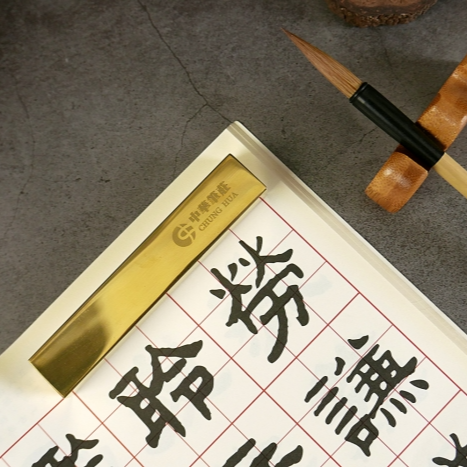 中華筆莊
CHUNG HUA
勞謙
聆